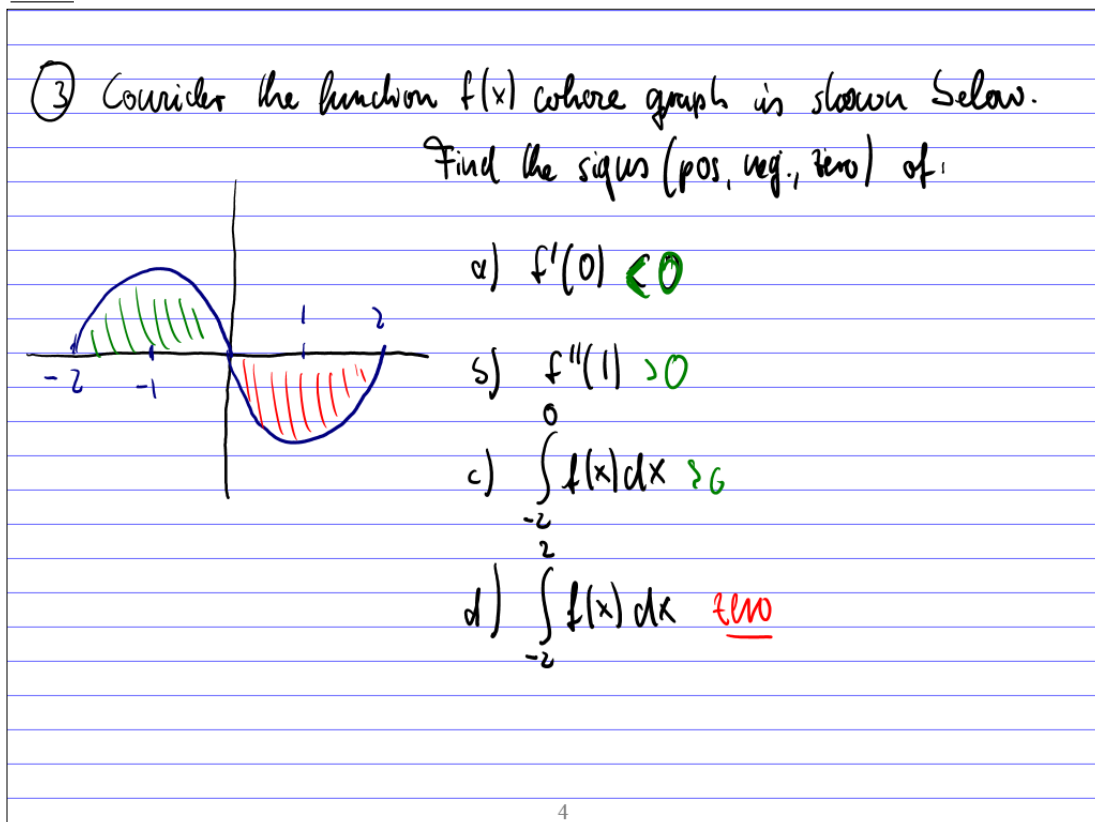 ③ Consider the function f(x) whose graph is shown below.
Find the signs (pos, neg., zero) of:
a) f'(0) < 0
b) f''(1) > 0
c) ∫_{-2}^{0} f(x) dx > 0
d) ∫_{-2}^{2} f(x) dx zero
-2 -1 1 2
4